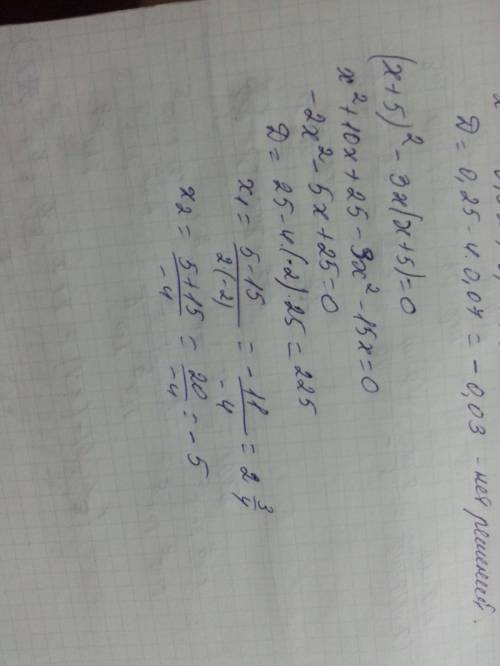 D = 0,25 - 4 · 0,07 = - 0,03 - нет решений.
(x+5)² - 3x(x+5)=0
x² + 10x + 25 - 3x² - 15x = 0
-2x² - 5x + 25 = 0
D = 25 - 4·(-2)·25 = 225
x₁ = (5-15)/(2(-2)) = (-11)/(-4) = 2 3/4
x₂ = (5+15)/(-4) = 20/(-4) = - 5